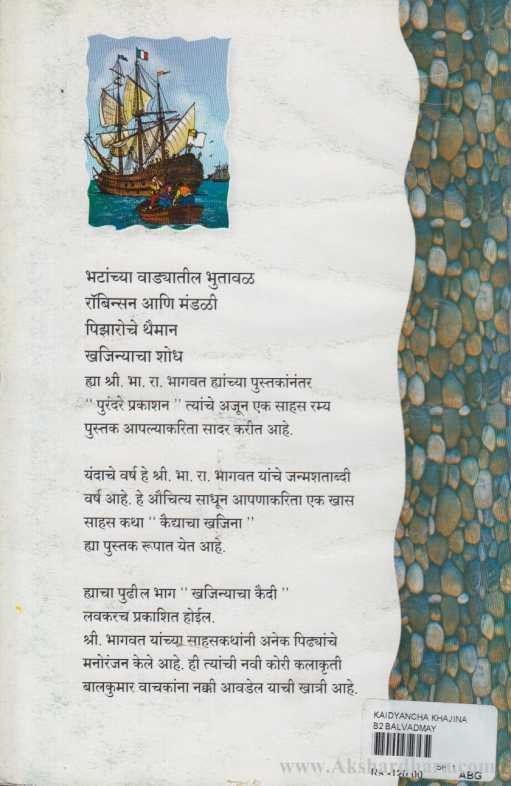 भटांच्या वाड्यातील भुतावळ
रॉबिन्सन आणि मंडळी
पिझारोचे थैमान
खजिन्याचा शोध
ह्या श्री. भा. रा. भागवत ह्यांच्या पुस्तकांनंतर
" पुरंदरे प्रकाशन " त्यांचे अजून एक साहस रम्य
पुस्तक आपल्याकरिता सादर करीत आहे.
यंदाचे वर्ष हे श्री. भा. रा. भागवत यांचे जन्मशताब्दी
वर्ष आहे. हे औचित्य साधून आपणाकरिता एक खास
साहस कथा " कैद्याचा खजिना "
ह्या पुस्तक रूपात येत आहे.
ह्याचा पुढील भाग " खजिन्याचा कैदी "
लवकरच प्रकाशित होईल.
श्री. भागवत यांच्या साहसकथांनी अनेक पिढ्यांचे
मनोरंजन केले आहे. ही त्यांची नवी कोरी कलाकृती
बालकुमार वाचकांना नक्की आवडेल याची खात्री आहे.
KAIDYANCHA KHAJINA
B2 BALVADMAY
www.Akshardhara.com
ABG